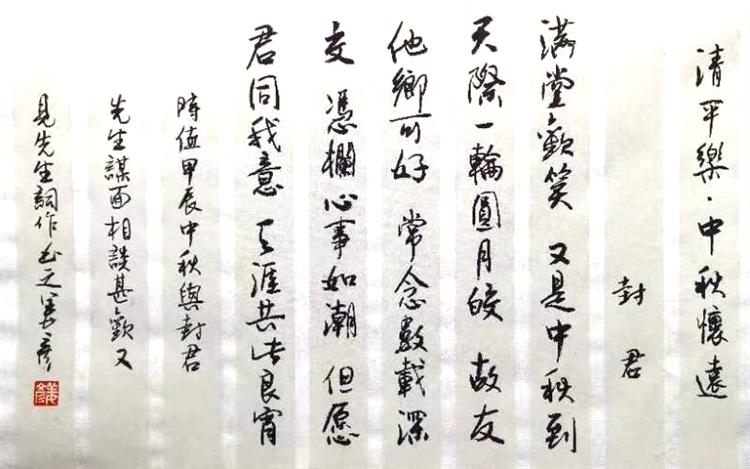 清平樂·中秋懷遠
封君
滿堂歡笑 又是中秋到
天際一輪圓月皎 故友
他鄉可好 常念數載深
交 憑欄心事如潮 但愿
君同我意 天涯共此良宵
時值甲辰中秋與封君
先生謀面相談甚歡又
見先生詞作書之美彥